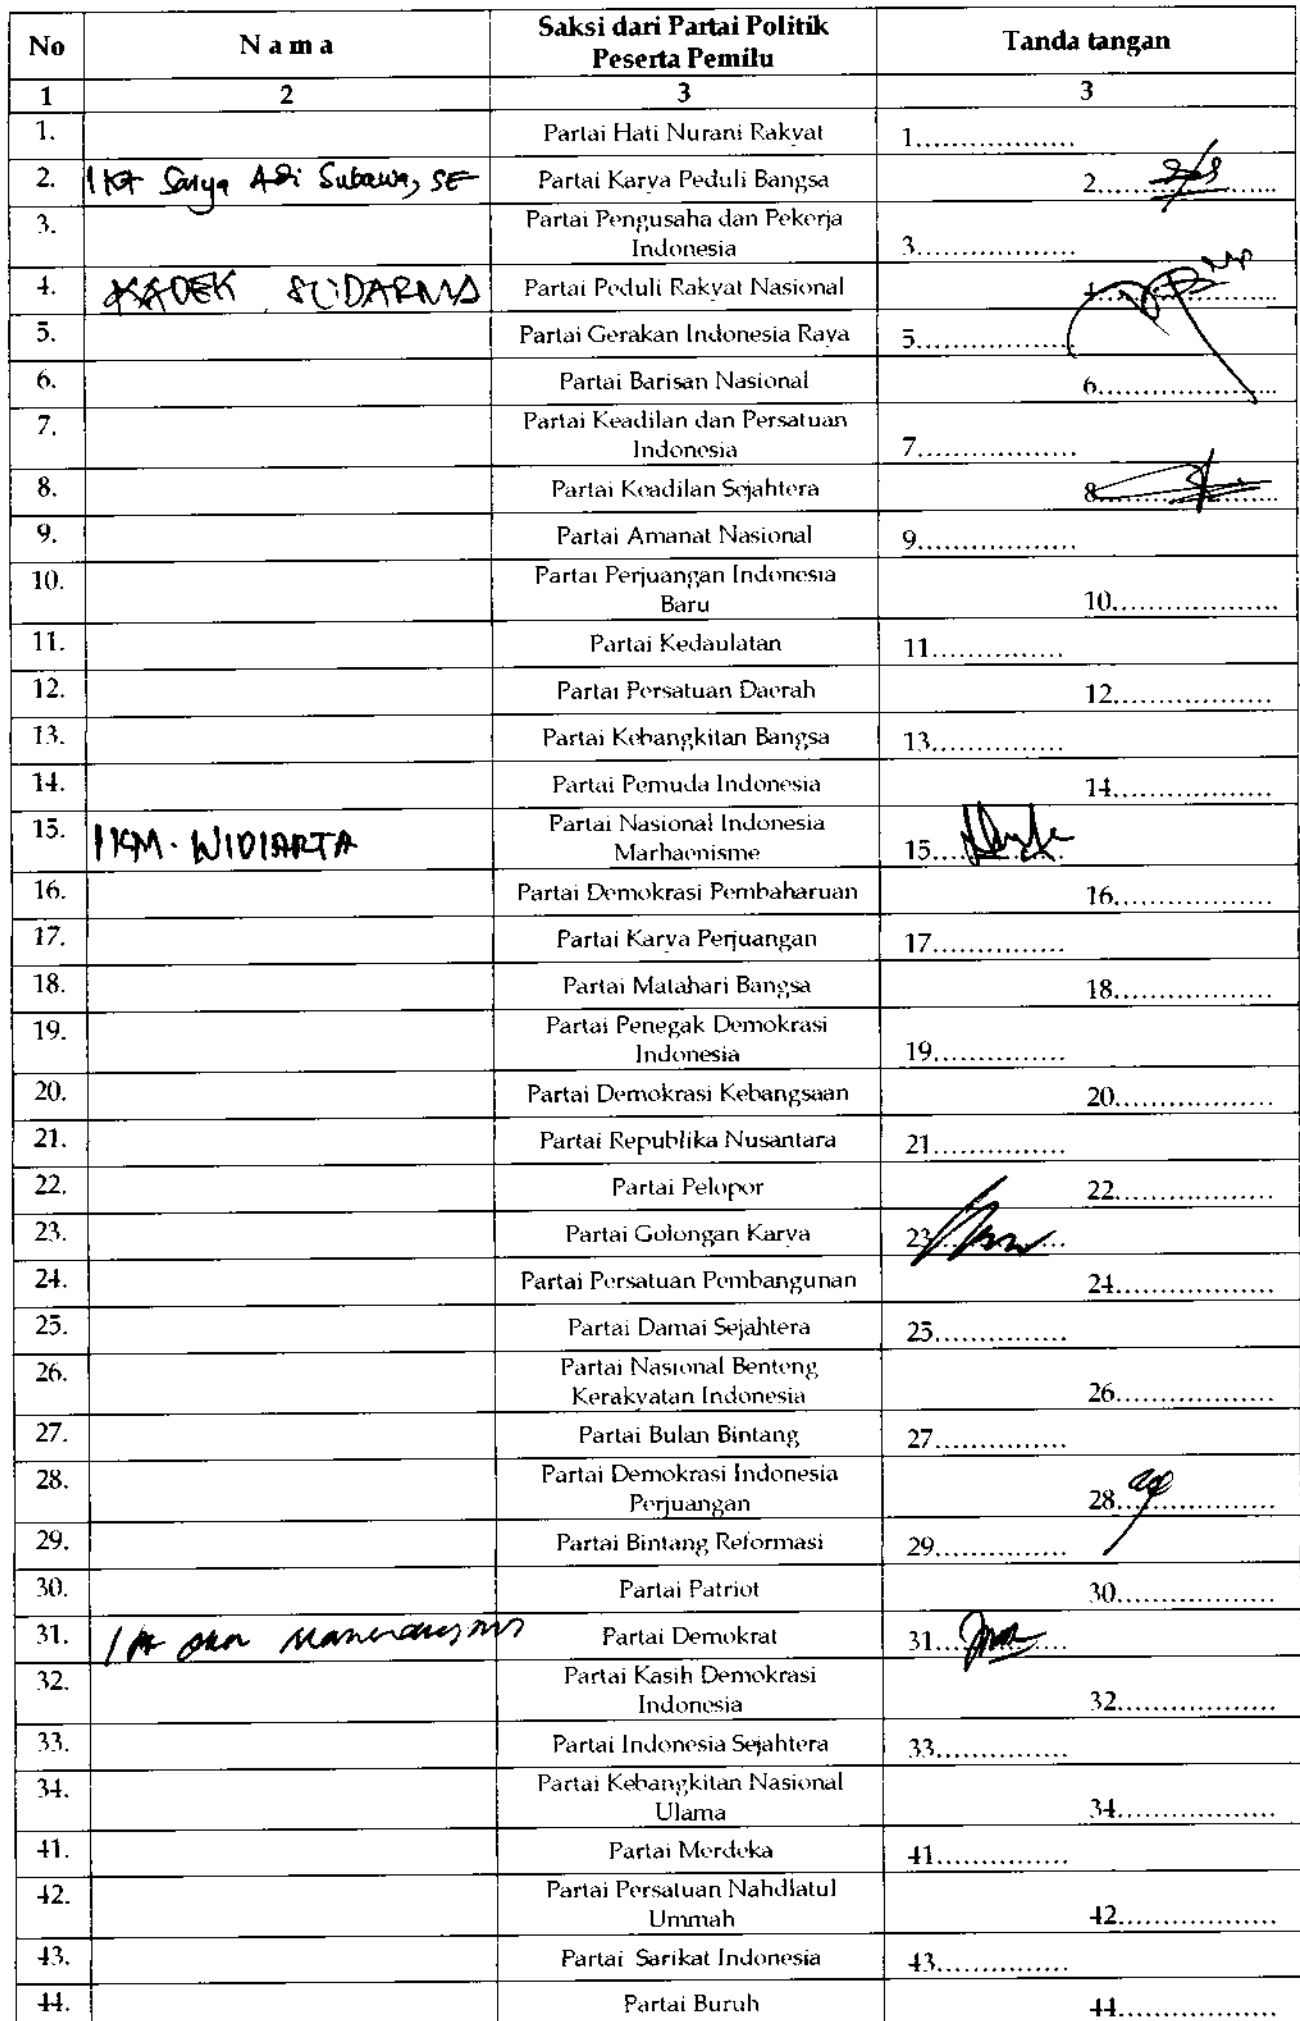 No Nama Saksi dari Partai Politik Tanda tangan
Peserta Pemilu
1 2 3 3
1. Partai Hati Nurani Rakyat 1.................
2. I Kt Sarya Adi Subawa, SE Partai Karya Peduli Bangsa 2...................
3. Partai Pengusaha dan Pekerja
Indonesia 3.................
4. KADEK SUDARMA Partai Peduli Rakyat Nasional 4...................
5. Partai Gerakan Indonesia Raya 5.................
6. Partai Barisan Nasional 6...................
7. Partai Keadilan dan Persatuan
Indonesia 7.................
8. Partai Keadilan Sejahtera 8...................
9. Partai Amanat Nasional 9.................
10. Partai Perjuangan Indonesia
Baru 10..................
11. Partai Kedaulatan 11...............
12. Partai Persatuan Daerah 12.................
13. Partai Kebangkitan Bangsa 13...............
14. Partai Pemuda Indonesia 14.................
15. I KM. WIDIARTA Partai Nasional Indonesia
Marhaenisme 15...............
16. Partai Demokrasi Pembaharuan 16.................
17. Partai Karya Perjuangan 17...............
18. Partai Matahari Bangsa 18.................
19. Partai Penegak Demokrasi
Indonesia 19...............
20. Partai Demokrasi Kebangsaan 20.................
21. Partai Republika Nusantara 21...............
22. Partai Pelopor 22.................
23. Partai Golongan Karya 23...............
24. Partai Persatuan Pembangunan 24.................
25. Partai Damai Sejahtera 25...............
26. Partai Nasional Benteng
Kerakyatan Indonesia 26.................
27. Partai Bulan Bintang 27...............
28. Partai Demokrasi Indonesia
Perjuangan 28.................
29. Partai Bintang Reformasi 29...............
30. Partai Patriot 30.................
31. Partai Demokrat 31...............
32. Partai Kasih Demokrasi
Indonesia 32.................
33. Partai Indonesia Sejahtera 33...............
34. Partai Kebangkitan Nasional
Ulama 34.................
41. Partai Merdeka 41...............
42. Partai Persatuan Nahdlatul
Ummah 42.................
43. Partai Sarikat Indonesia 43...............
44. Partai Buruh 44.................